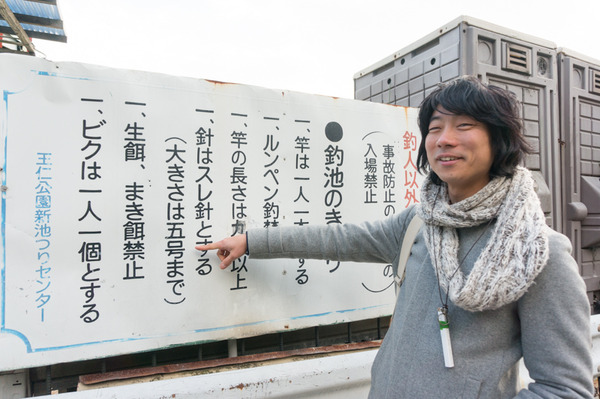 釣人以外
(事故防止の
入場禁止
●釣池のき り
一、竿は一人一 する
一、ルンペン釣
一、竿の長さは 以上
一、針はスレ針とする
(大きさは五号まで)
一、生餌、まき餌禁止
一、ビクは一人一個とする
王仁公園新池つりセンター